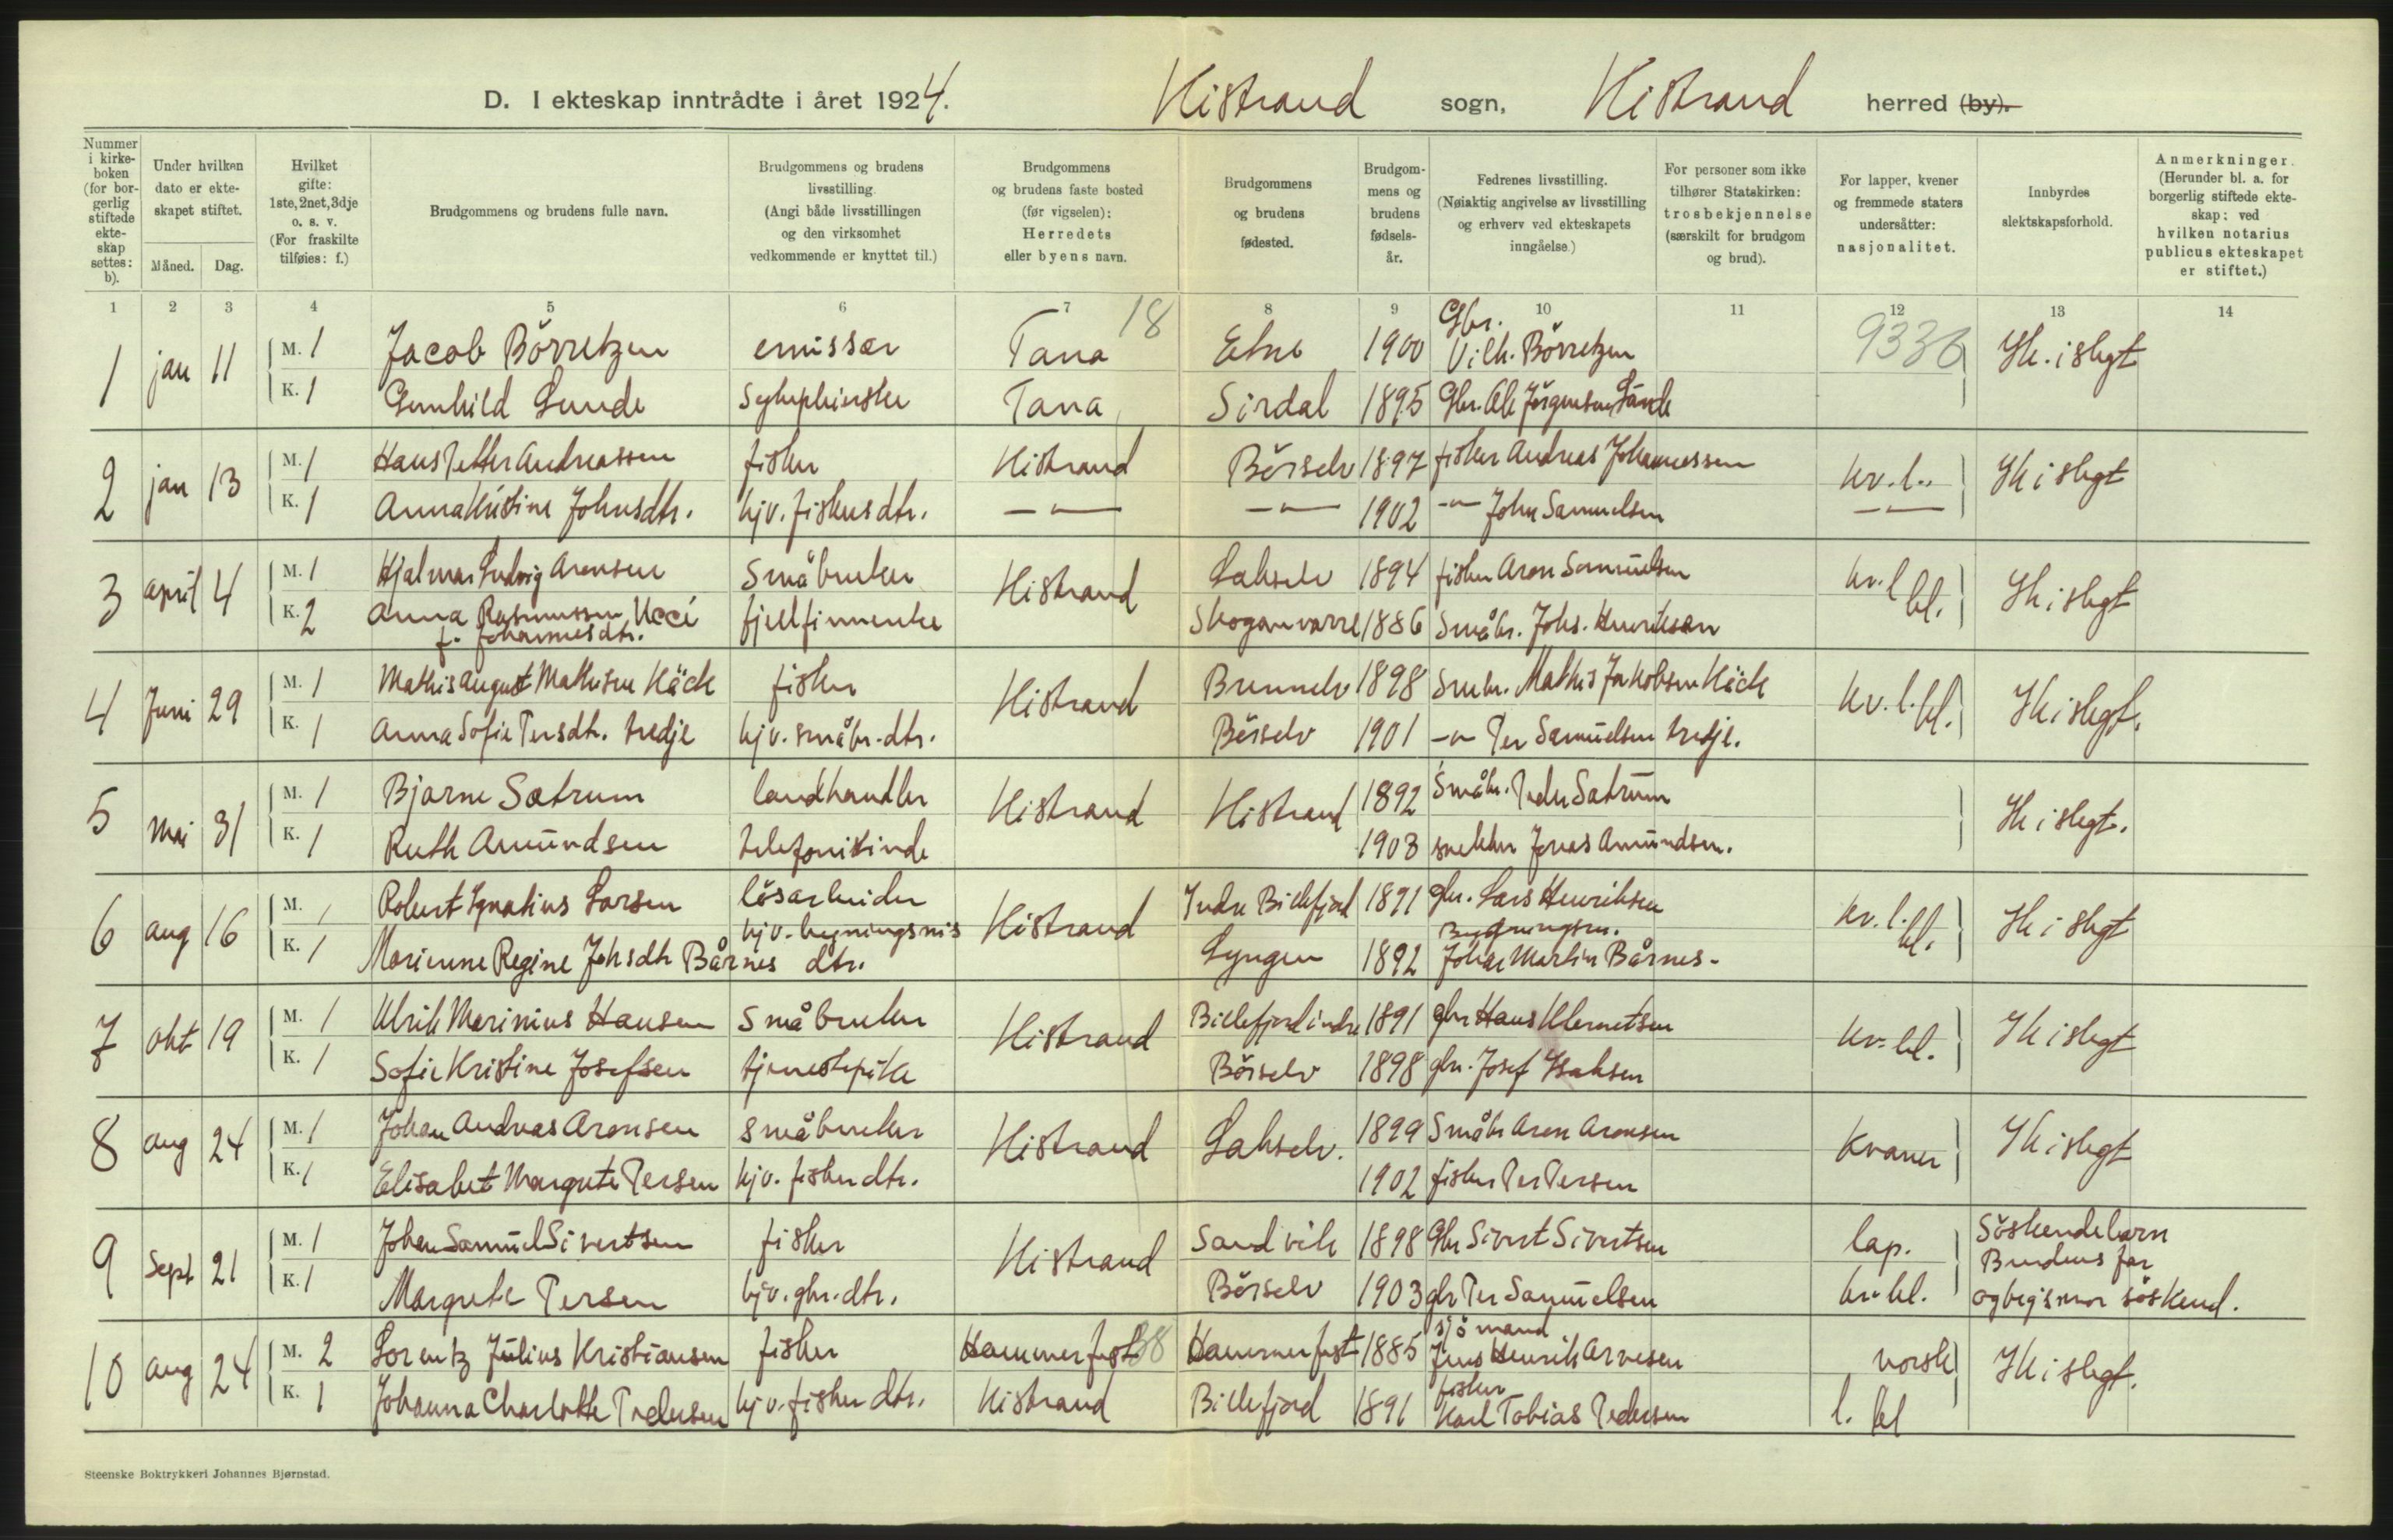 D. I ekteskap inntrådte i året 1924. Kistrand sogn, Kistrand herred (by).
Nummer i kirkeboken (for borgerlig stiftede ekteskap settes: b).
Under hvilken dato er ekteskapet stiftet.
Måned. Dag.
Hvilket gifte: 1ste, 2net, 3dje o. s. v. (For fraskilte tilføies: f.)
Brudgommens og brudens fulle navn.
Brudgommens og brudens livsstilling. (Angi både livsstillingen og den virksomhet vedkommende er knyttet til.)
Brudgommens og brudens faste bosted (før vigselen): Herredets eller byens navn.
Brudgommens og brudens fødested.
Brudgommens og brudens fødselsår.
Fedrenes livsstilling. (Nøiaktig angivelse av livsstilling og erhverv ved ekteskapets inngåelse.)
For personer som ikke tilhører Statskirken: trosbekjennelse (særskilt for brudgom og brud).
For lapper, kvener og fremmede staters undersåtter: nasjonalitet.
Innbyrdes slektskapsforhold.
Anmerkninger. (Herunder bl. a. for borgerlig stiftede ekteskap: ved hvilken notarius publicus ekteskapet er stiftet.)
1 2 3 4 5 6 7 8 9 10 11 12 13 14
18
1 jan 11 M. 1 Jacob Börretzen emissær Tana Etne 1900 Gbr. Vilh. Börretzen 9336 Ik. i slegt
K. 1 Gunhild Lunde Tana Sirdal 1895 Gbr. Ole Jörgensen Lunde
2 jan 13 M. 1 Hans Petter Andreassen fisker Kistrand Börselv 1897 fisker Andreas Johannessen kv. l. Ik i slegt
K. 1 Anna Kristine Johnsdtr. hjv. fiskersdtr. —"— —"— 1902 —"— John Samuelsen —"—
3 april 4 M. 1 Hjalmar Ludvig Aronsen Småbruker Kistrand Lakselv 1894 fisker Aron Samuelsen kv. l. bl. Ik i slegt
K. 2 Anna Rasmussen Ucci f. Johannesdtr. fjellfinnenke Skoganvarre 1886 Småbr. Johs. Henriksen
4 Juni 29 M. 1 Mathis August Mathisen Käck fisker Kistrand Brennelv 1898 Smbr. Mathis Jakobsen Käck kv. l. bl. Ik i slegt.
K. 1 Anna Sofie Persdtr. tredje hjv. småbr. dtr. Börselv 1901 —"— Per Samuelsen tredje.
5 mai 31 M. 1 Bjarne Sætrum landhandler Kistrand Kistrand 1892 Småbr. Peder Sætrum Ik i slegt.
K. 1 Ruth Amundsen telefonistinde 1903 snekker Jonas Amundsen.
6 aug 16 M. 1 Robert Ignatius Larsen lösarbeider Kistrand Indre Billefjord 1891 gbr. Lars Henriksen kv. l. bl. Ik i slegt
K. 1 Marienne Regine Johsdtr Bårnes hjv. bygningsm's dtr. Lyngen 1892 Bygningsm. Johan Martin Bårnes.
7 okt 19 M. 1 Ulrik Marinius Hansen Småbruker Kistrand Billefjord indre 1891 gbr Hans Klemetsen kv. bl. Ik i slegt
K. 1 Sofie Kristine Josefsen tjenestepike Börselv 1898 gbr. Josef Isaksen
8 aug 24 M. 1 Johan Andreas Aronsen småbruker Kistrand Lakselv. 1899 Småbr Aron Aronsen Kvæner Ik i slegt
K. 1 Elisabet Margrete Persen hjv. fisker dtr. 1902 fisker Per Persen
9 Sept 21 M. 1 Johan Samuel Sivertsen fisker Kistrand Sandvik 1898 Gbr Sivert Sivertsen lap. Söskendebarn
K. 1 Margrete Persen hjv. gbr. dtr. Börselv 1903 gbr Per Samuelsen kv. bl. Brudens far og brg's mor söskend.
10 aug 24 M. 2 Lorentz Julius Kristiansen fisker Hammerfest 38 Hammerfest 1885 sjömand Jens Henrik Arnesen norsk Ik i slegt.
K. 1 Johanna Charlotte Pedersen hjv. fisker dtr. Kistrand Billefjord 1891 fisker Karl Tobias Pedersen l. bl
Steenske Boktrykkeri Johannes Bjørnstad.